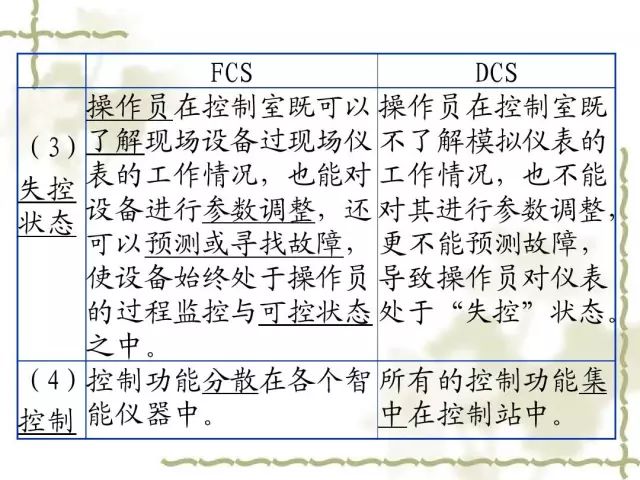 FCS
DCS
（3）
失控
状态
操作员在控制室既可以
了解现场设备过现场仪
表的工作情况，也能对
设备进行参数调整，还
可以预测或寻找故障，
使设备始终处于操作员
的过程监控与可控状态
之中。
操作员在控制室既
不了解模拟仪表的
工作情况，也不能
对其进行参数调整，
更不能预测故障，
导致操作员对仪表
处于“失控”状态。
（4）
控制
控制功能分散在各个智
能仪器中。
所有的控制功能集
中在控制站中。